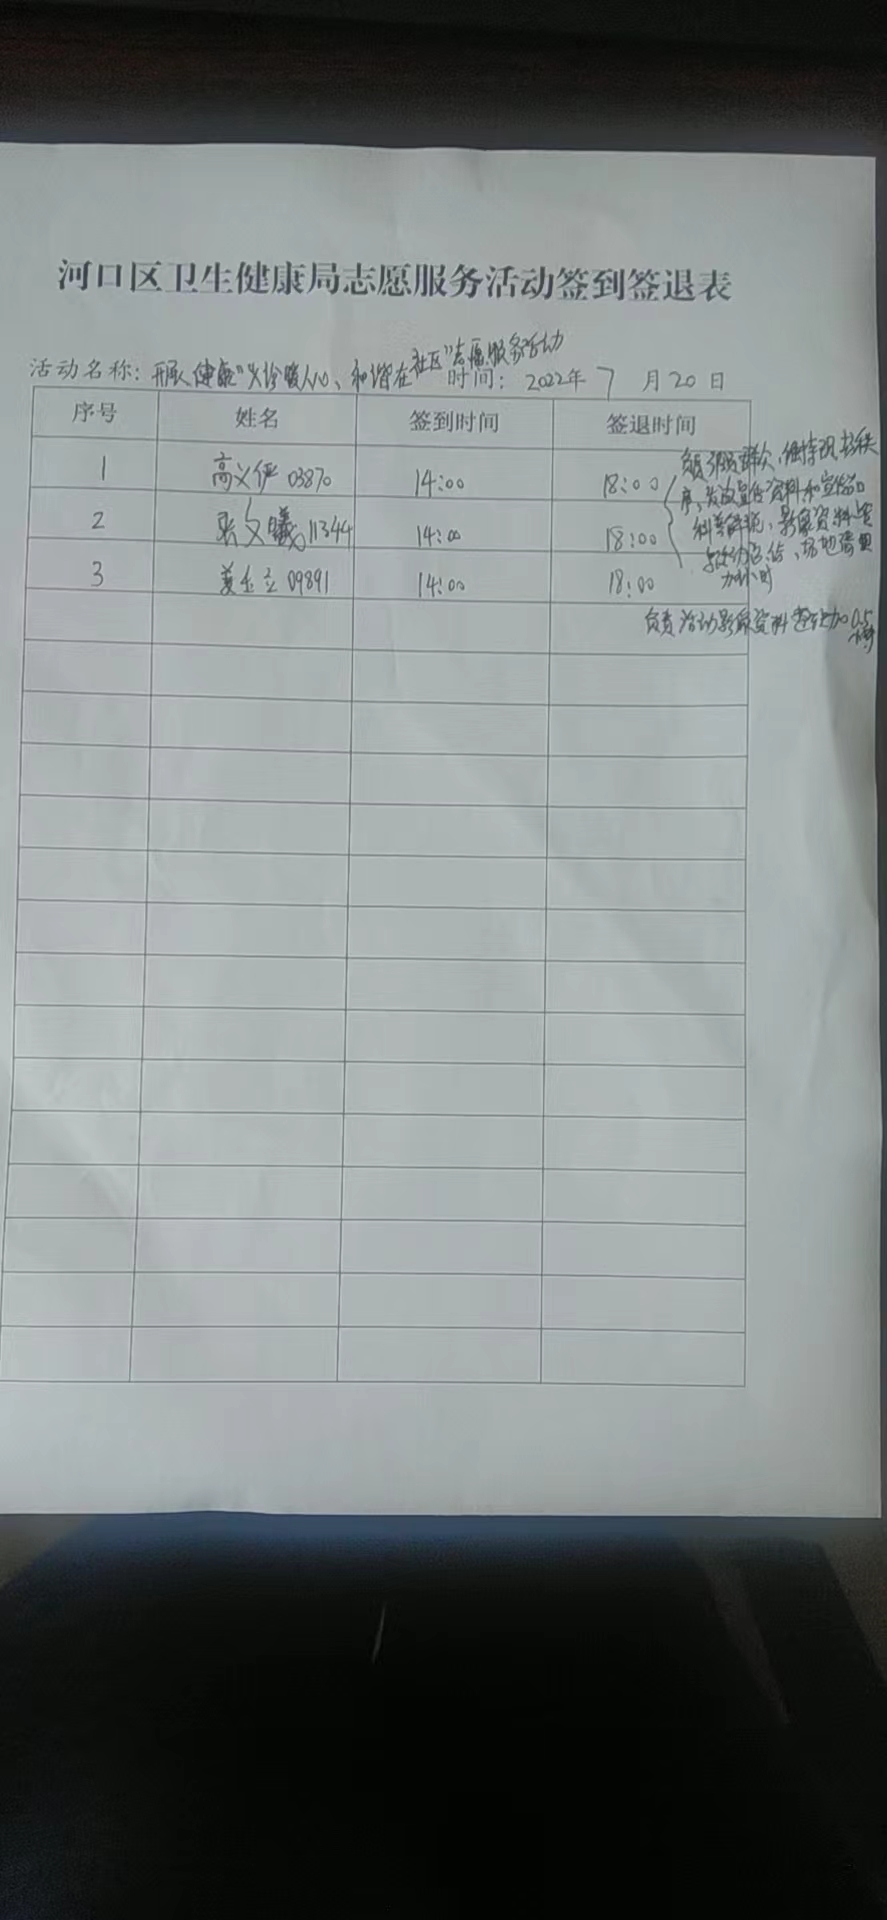 河口区卫生健康局志愿服务活动签到签退表
活动名称：健康"义诊暖人心、和谐在社区"志愿服务活动
时间：2022年 7 月 20 日
序号 姓名 签到时间 签退时间
1 高义俨 03870 14:00 18:00
2 张文曦 11344 14:00 18:00
3 姜玉立 09891 14:00 18:00
负责引导群众、维持现场秩
序、发放宣传资料和宣传品
科普、影像资料
场地清理
加小时
负责活动影像资料整理加0.5
小时